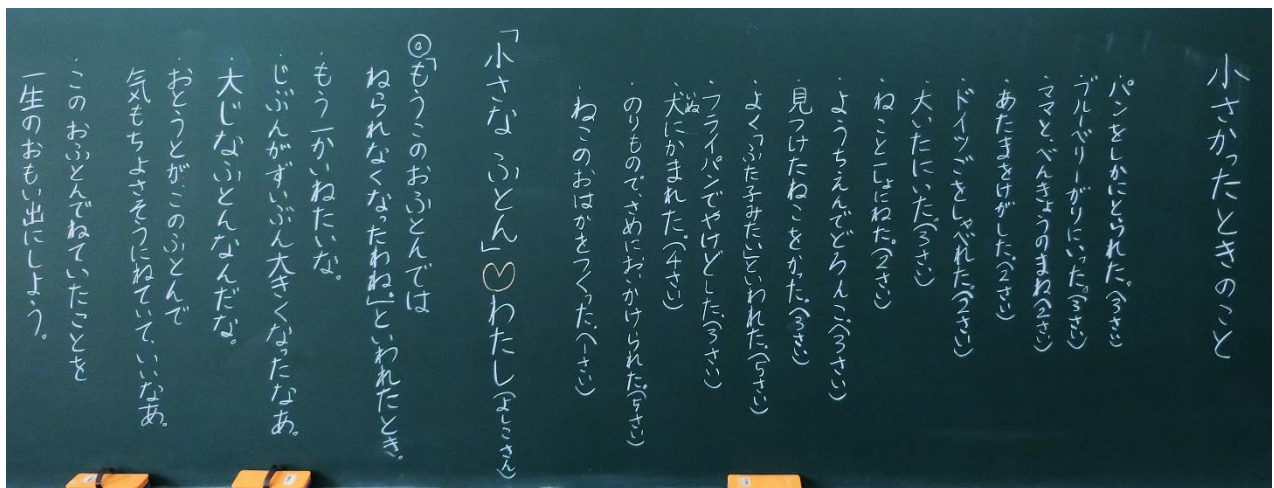 小さかったときのこと
・パンをしかにとられた。(3さい)
・ブルーベリーがりにいった。(3さい)
・ママと、べんきょうのまね(2さい)
・あたまをけがした。(2さい)
・ドイツごをしゃべれた。(2さい)
・大いたにいた。(3さい)
・ねこと一しょにねた。(2さい)
・ようちえんでどろんこ(3さい)
・見つけたねこをかった。(3さい)
・よく「ふた子みたい」といわれた。(5さい)
・フライパンでやけどした。(3さい)
・犬にかまれた。(4さい)
いぬ
・のりもので、さめにおいかけられた。(5さい)
・ねこのおはかをつくった。(一さい)
「小さな ふとん」♡わたし(よしこさん)
◎「もうこのおふとんでは
ねられなくなったわね。」といわれたとき。
・もう一かいねたいな。
・じぶんがずいぶん大きくなったなあ。
・大じなふとんなんだな。
・おとうとが、このふとんで
気もちよさそうにねていて、いいなあ。
・このおふとんでねていたことを
一生のおもい出にしよう。